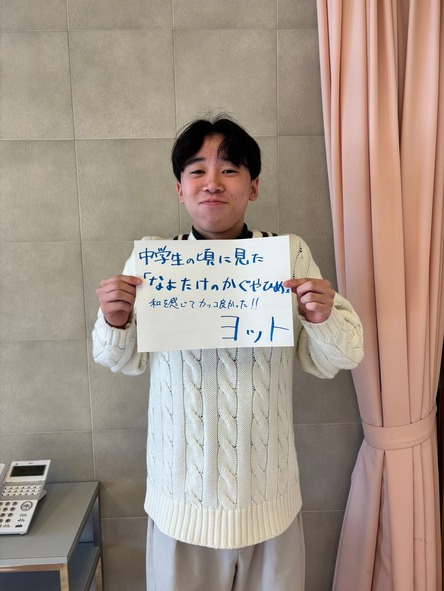 中学生の頃に見た
「なよたけのかぐやひめ」
和を感じてカッコ良かった!!
ヨット